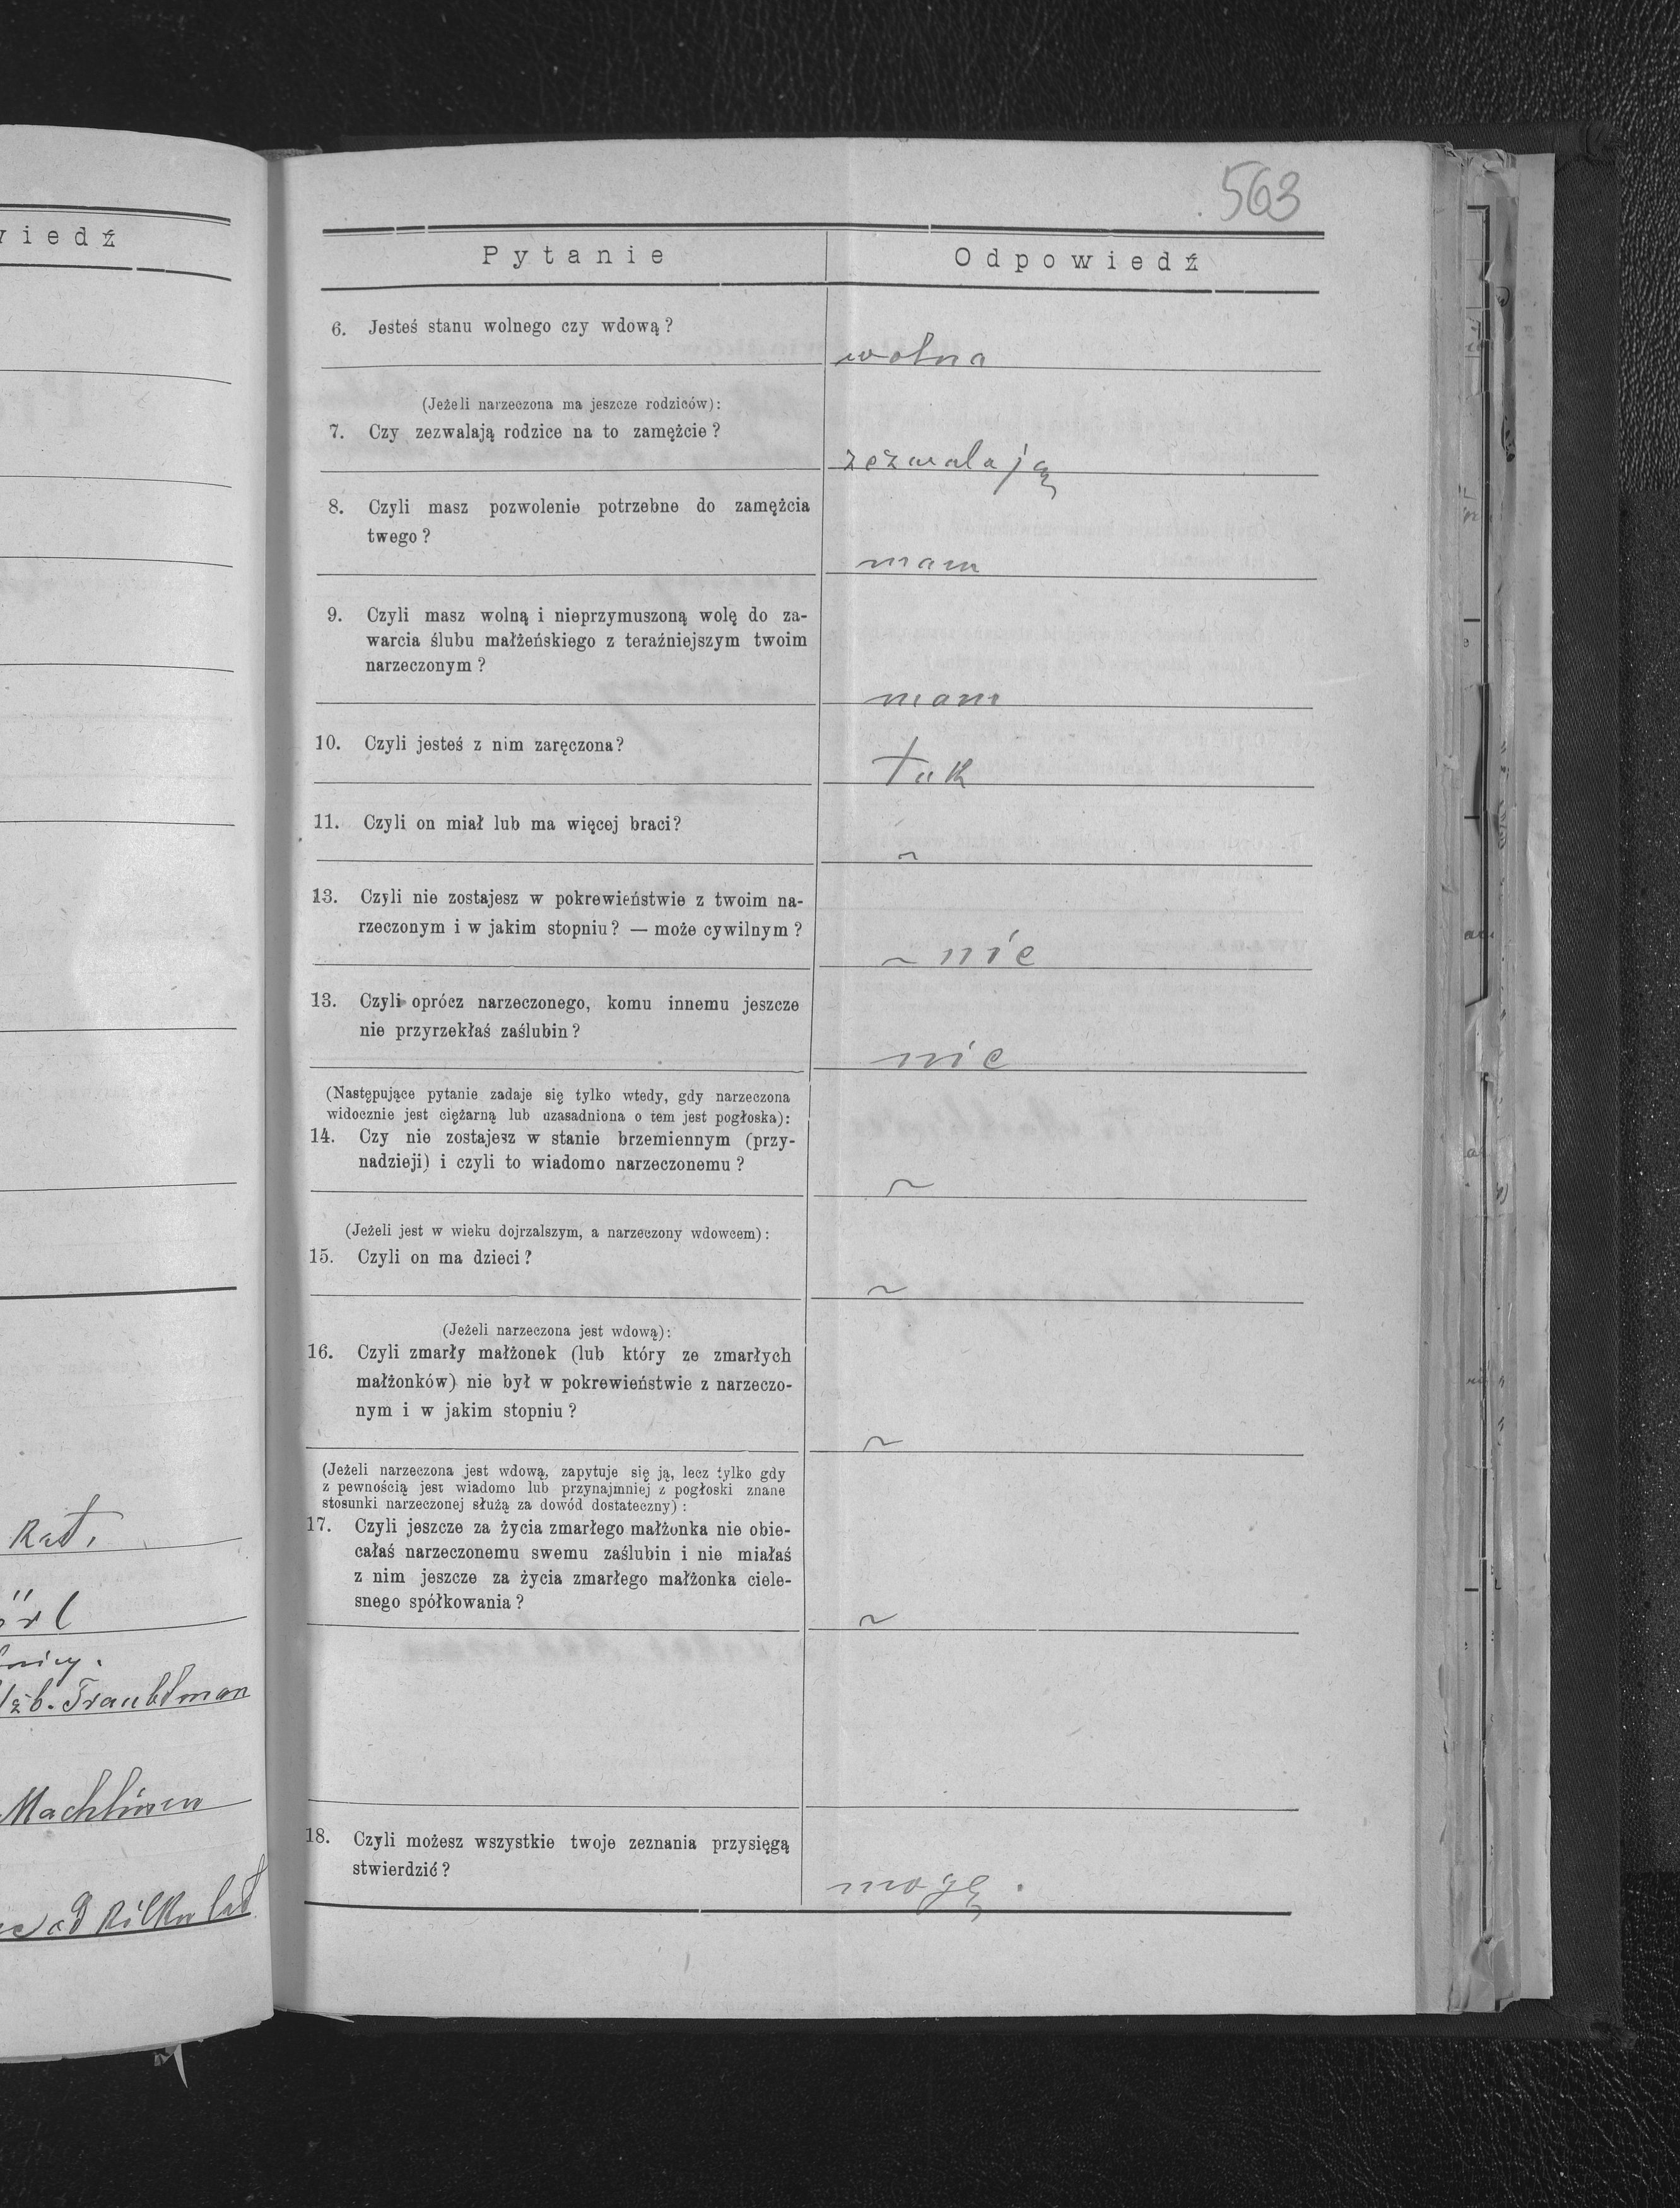 563
wiedź
Pytanie Odpowiedź
6. Jesteś stanu wolnego czy wdową?
wolna
(Jeżeli narzeczona ma jeszcze rodziców):
7. Czy zezwalają rodzice na to zamężcie?
zezwalają
8. Czyli masz pozwolenie potrzebne do zamężcia
twego?
mam
9. Czyli masz wolną i nieprzymuszoną wolę do za-
warcia ślubu małżeńskiego z teraźniejszym twoim
narzeczonym?
mam
10. Czyli jesteś z nim zaręczona?
tak
11. Czyli on miał lub ma więcej braci?
~
13. Czyli nie zostajesz w pokrewieństwie z twoim na-
rzeczonym i w jakim stopniu? — może cywilnym?
~ nie
13. Czyli oprócz narzeczonego, komu innemu jeszcze
nie przyrzekłaś zaślubin?
nie
(Następujące pytanie zadaje się tylko wtedy, gdy narzeczona
widocznie jest ciężarną lub uzasadniona o tem jest pogłoska):
14. Czy nie zostajesz w stanie brzemiennym (przy-
nadzieji) i czyli to wiadomo narzeczonemu?
~
(Jeżeli jest w wieku dojrzalszym, a narzeczony wdowcem):
15. Czyli on ma dzieci?
~
(Jeżeli narzeczona jest wdową):
16. Czyli zmarły małżonek (lub który ze zmarłych
małżonków) nie był w pokrewieństwie z narzeczo-
nym i w jakim stopniu?
~
(Jeżeli narzeczona jest wdową, zapytuje się ją, lecz tylko gdy
z pewnością jest wiadomo lub przynajmniej z pogłoski znane
stosunki narzeczonej służą za dowód dostateczny):
17. Czyli jeszcze za życia zmarłego małżonka nie obie-
całaś narzeczonemu swemu zaślubin i nie miałaś
z nim jeszcze za życia zmarłego małżonka ciele-
snego spółkowania?
~
18. Czyli możesz wszystkie twoje zeznania przysięgą
stwierdzić?
mogę.
Kat.
örl
Elżb. Traubtman
Machlinen
od kilku lat